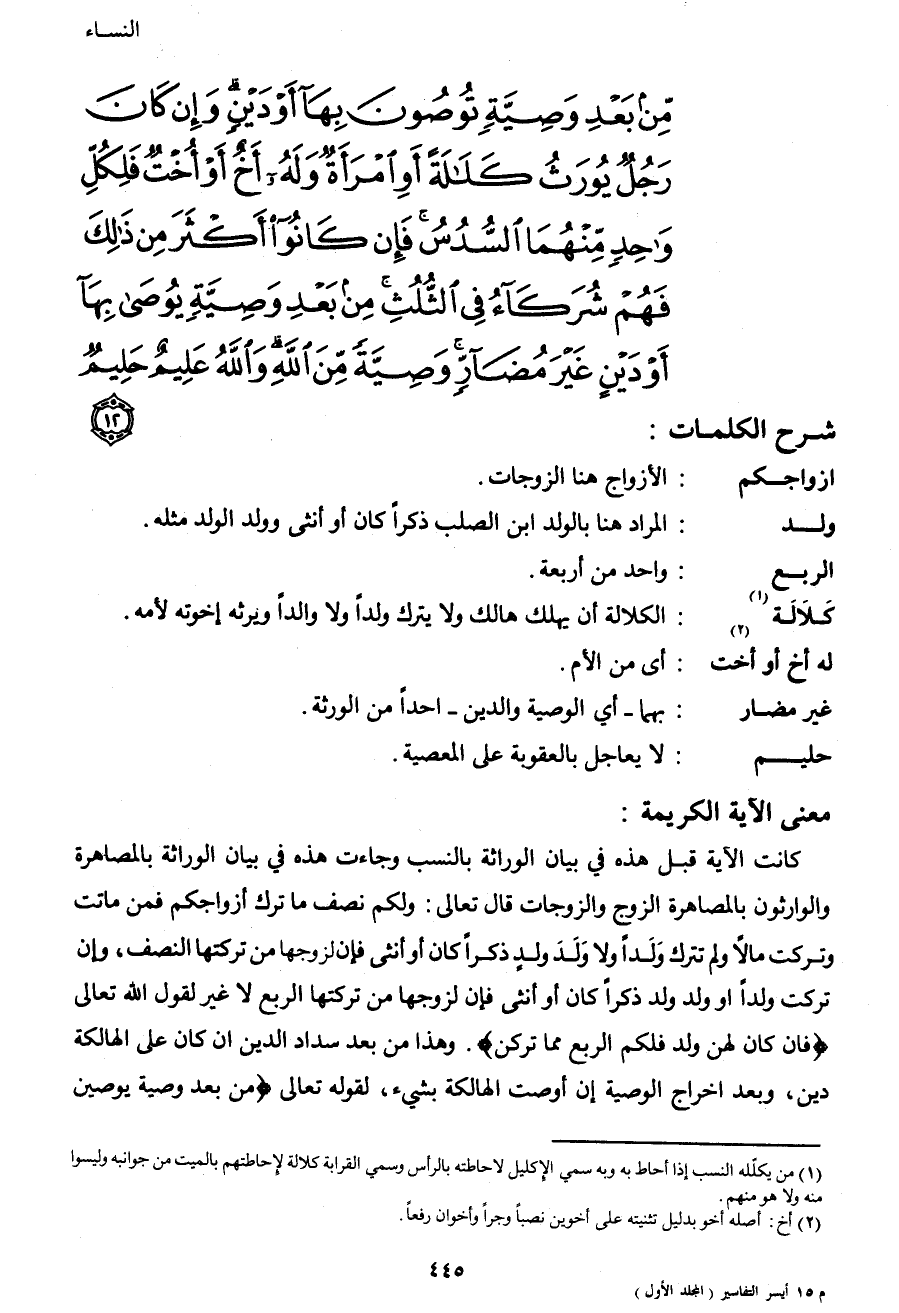 النساء
مِّنۢ بَعْدِ وَصِيَّةٍ تُوصُونَ بِهَآ أَوْ دَيْنٍۗ وَإِن كَانَ
رَجُلٌ يُورَثُ كَلَٰلَةً أَوِ ٱمْرَأَةٌ وَلَهُۥٓ أَخٌ أَوْ أُخْتٌ فَلِكُلِّ
وَٰحِدٍ مِّنْهُمَا ٱلسُّدُسُۚ فَإِن كَانُوٓا۟ أَكْثَرَ مِن ذَٰلِكَ
فَهُمْ شُرَكَآءُ فِى ٱلثُّلُثِۚ مِنۢ بَعْدِ وَصِيَّةٍ يُوصَىٰ بِهَآ
أَوْ دَيْنٍ غَيْرَ مُضَآرٍّۚ وَصِيَّةً مِّنَ ٱللَّهِۗ وَٱللَّهُ عَلِيمٌ حَلِيمٌ
١٢
شرح الكلمات :
ازواجكم : الأزواج هنا الزوجات .
ولد : المراد هنا بالولد ابن الصلب ذكراً كان أو أنثى وولد الولد مثله .
الربع : واحد من أربعة .
كَلَالَة (١) : الكلالة أن يهلك هالك ولا يترك ولداً ولا والداً ويرثه إخوته لأمه .
له أخ أو أخت (٢) : أى من الأم .
غير مضار : بهما ـ أي الوصية والدين ـ احداً من الورثة .
حليم : لا يعاجل بالعقوبة على المعصية .
معنى الآية الكريمة :
كانت الآية قبل هذه في بيان الوراثة بالنسب وجاءت هذه في بيان الوراثة بالمصاهرة
والوارثون بالمصاهرة الزوج والزوجات قال تعالى : ولكم نصف ما ترك أزواجكم فمن ماتت
وتركت مالاً ولم تترك وَلَداً ولا وَلَدَ ولدٍ ذكراً كان أو أنثى فإن لزوجها من تركتها النصف ، وإن
تركت ولداً او ولد ولد ذكراً كان أو أنثى فإن لزوجها من تركتها الربع لا غير لقول الله تعالى
﴿فان كان لهن ولد فلكم الربع مما تركن﴾ . وهذا من بعد سداد الدين ان كان على الهالكة
دين ، وبعد اخراج الوصية إن أوصت الهالكة بشيء ، لقوله تعالى ﴿من بعد وصية يوصين
(١) من يكلّله النسب إذا أحاط به وبه سمي الإكليل لاحاطته بالرأس وسمي القرابة كلالة لإحاطتهم بالميت من جوانبه وليسوا
منه ولا هو منهم .
(٢) أخ : أصله أخو بدليل تثنيته على أخوين نصباً وجراً وأخوان رفعاً .
٤٤٥
م ١٥ أيسر التفاسير ( المجلد الأول )